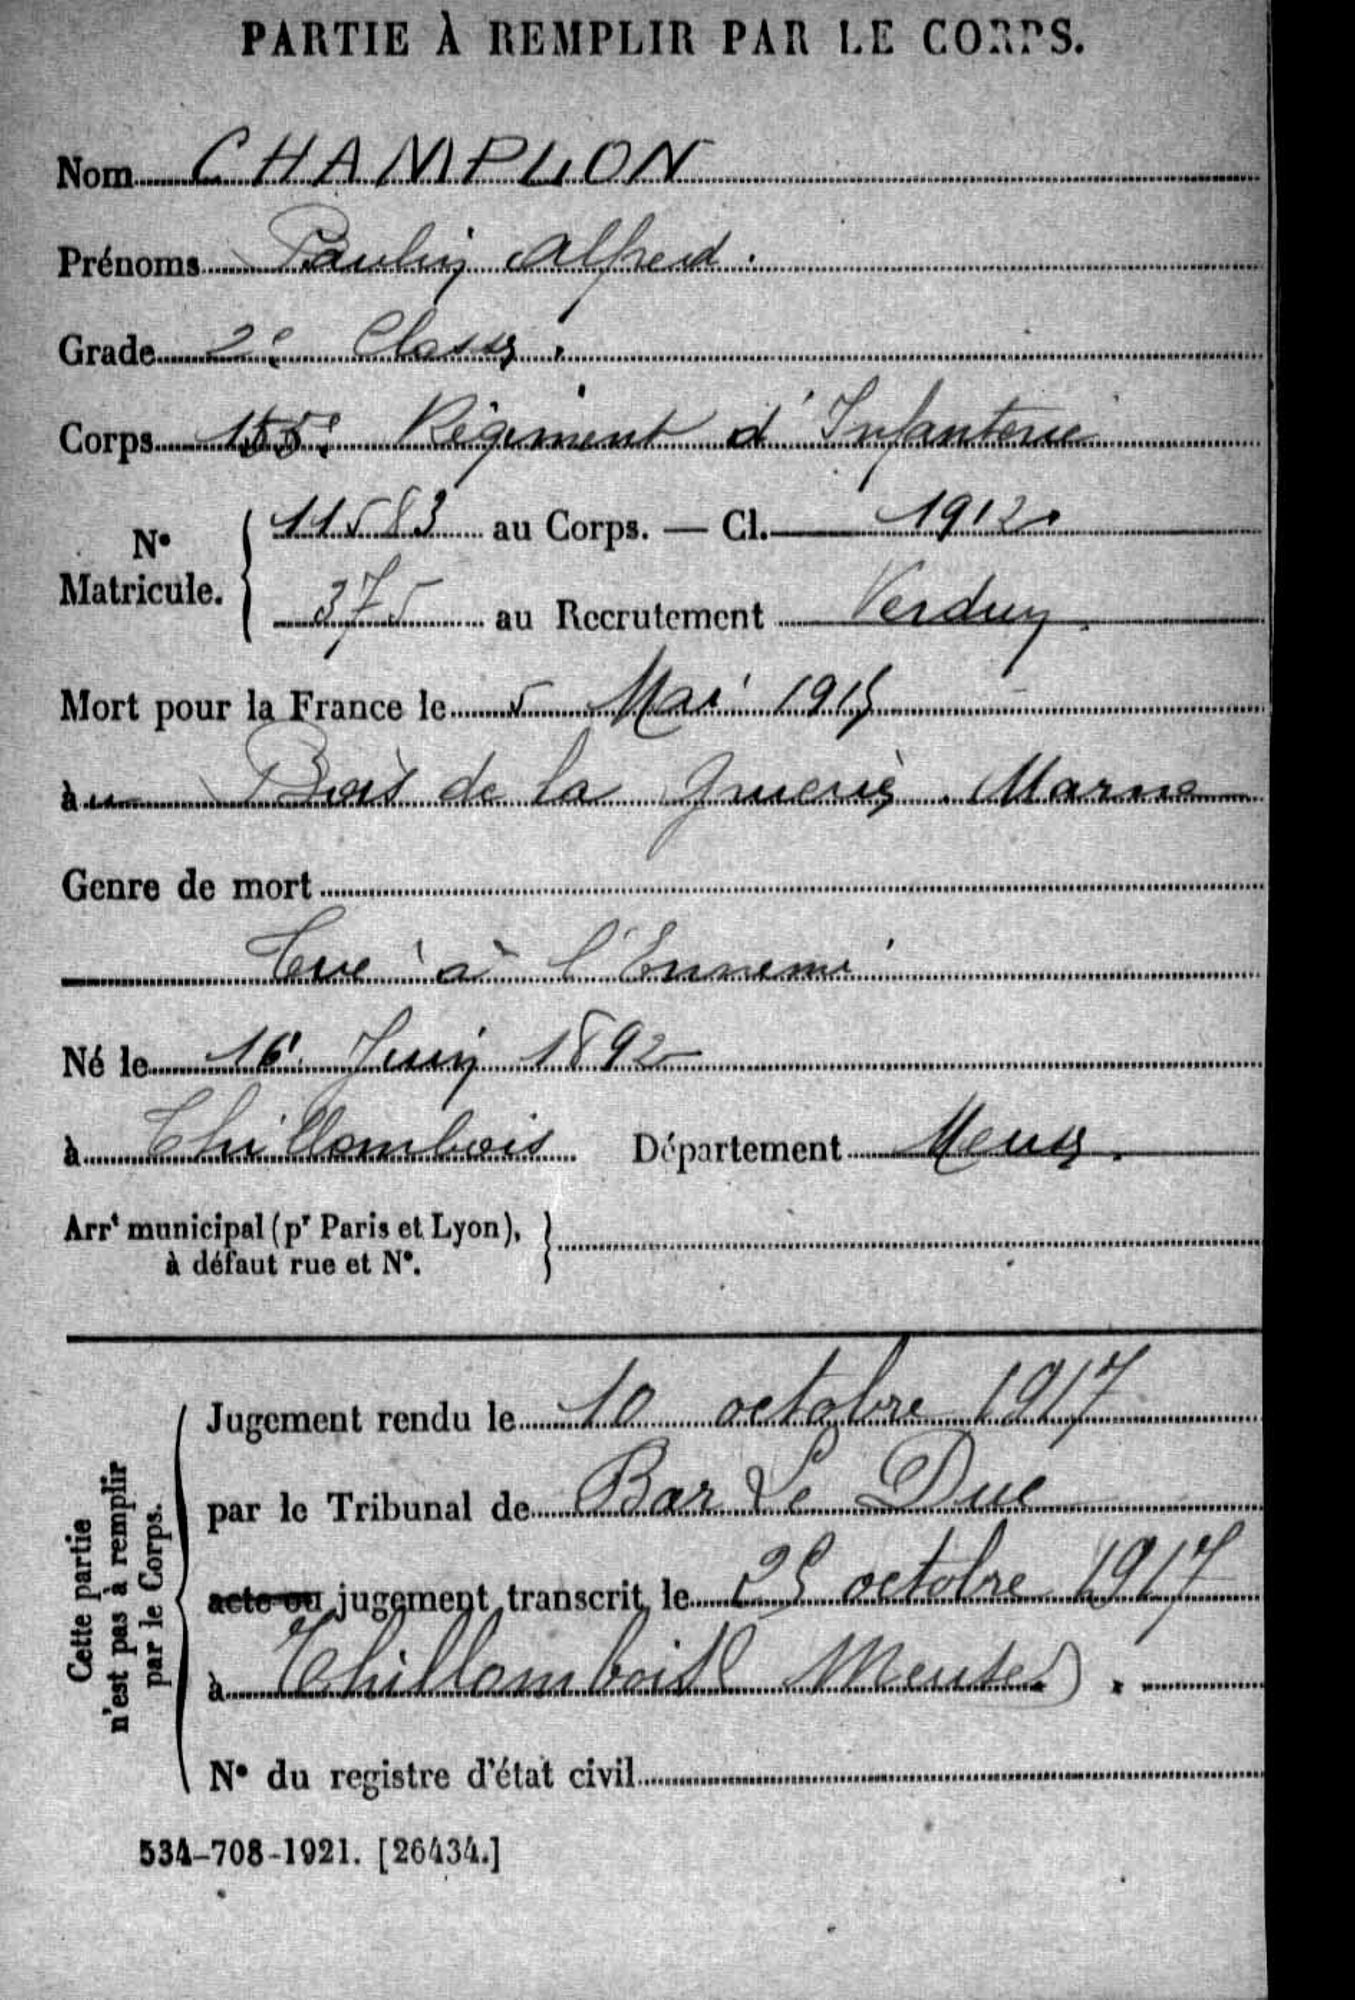 PARTIE À REMPLIR PAR LE CORPS.
Nom CHAMPLON
Prénoms Paulin Alfred.
Grade 2e Classe.
Corps 155e Régiment d'Infanterie
N° Matricule. { 11583 au Corps. — Cl. 1912
375 au Recrutement Verdun.
Mort pour la France le 5 Mai 1915
au Bois de la Gruerie. Marne
Genre de mort
Tué à l'Ennemi
Né le 16 Juin 1892
à Thillombois Département Meuse.
Arrt municipal (pr Paris et Lyon), }
à défaut rue et N°.
Cette partie
n'est pas à remplir
par le Corps.
Jugement rendu le 10 octobre 1917
par le Tribunal de Bar Le Duc
acte ou jugement transcrit le 25 octobre 1917
à Thillombois (Meuse).
N° du registre d'état civil
534-708-1921. [26434.]